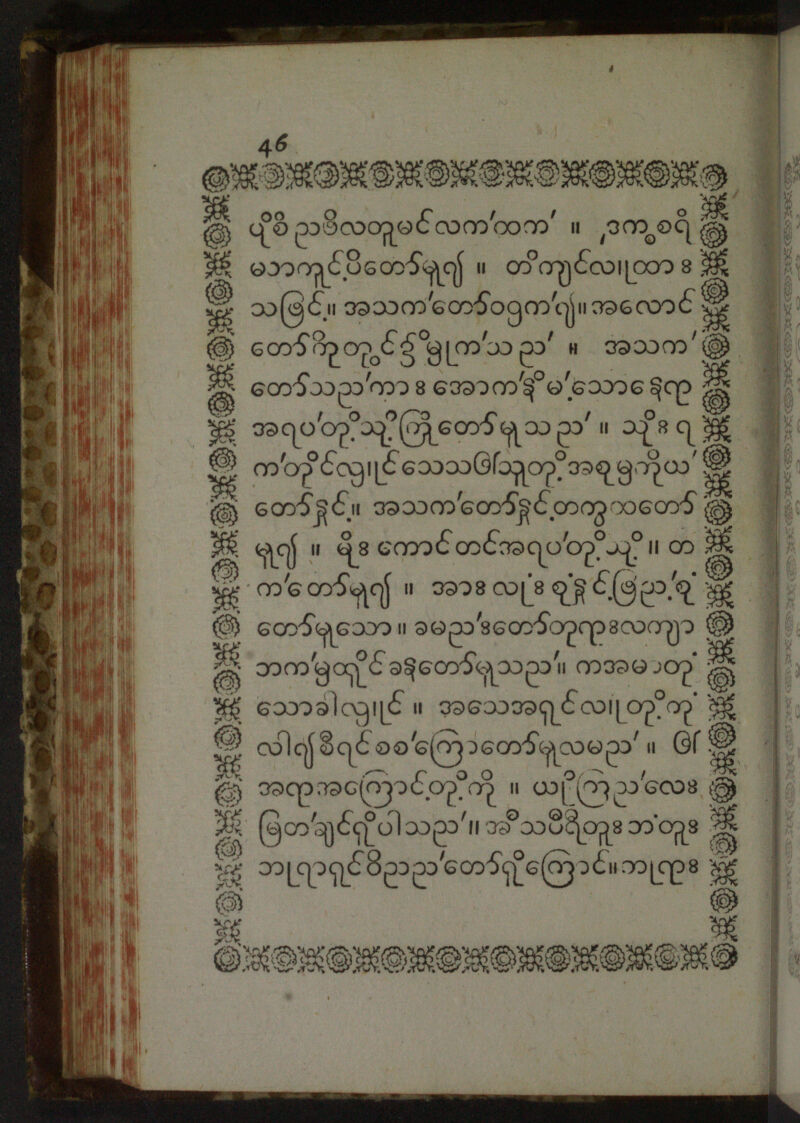 46
ပိုစိ ညာဖိလတူမင်လက်ထက် ။
မသာကျင့်ပိတော်မူ၍ ။ တိုကျင်လျထာ း
သဖြင့်။ အသက်တော်ဝဥက်ရျ။ အလောင်
တော်ကိုတွင် မြုက်သည် ။ အသက်
တော်သည်ကာ း အောက်နိုမ့်သောနေရာ
အရပ်တို့သို့ကြူတော်မူသည် ။ သိုး ရ
က်တိုင်လျျင် သေသဩသူတို့အစုမှကိုယ်
တော်နှင့်။ အသက်တော်နှင့်တကွထတော်
မူ၍ ။ မိုး ကောင်တင်အရပ်တို့သို့ ။ တ
က်တော်မူ၍ ။ အား လုပ်း စုံနှင့်ဖြည့်စုံ
တော်မူသော ။ ခမည်းတော်တုရားလကျာ
ဘက်မှထိုင်ခနေတော်မူသည်။ ကအမ၂တုံ
သောခါလျျင် ။ အသေအရှင်လျူတို့ကုံ
လါ၍စီရင်စစ်ကြောတော်မူလမည် ။ ဩ
အရာအကြောင့်တို့ကို ။ ယုံကြည်လေး
မြတ်ချင်ရှိပါသည်။ အိသပီရိတူး သာ်တူး
ဘုရာရှင်ဝိညည်တော်ရှိကြောင်။ ဘုရား